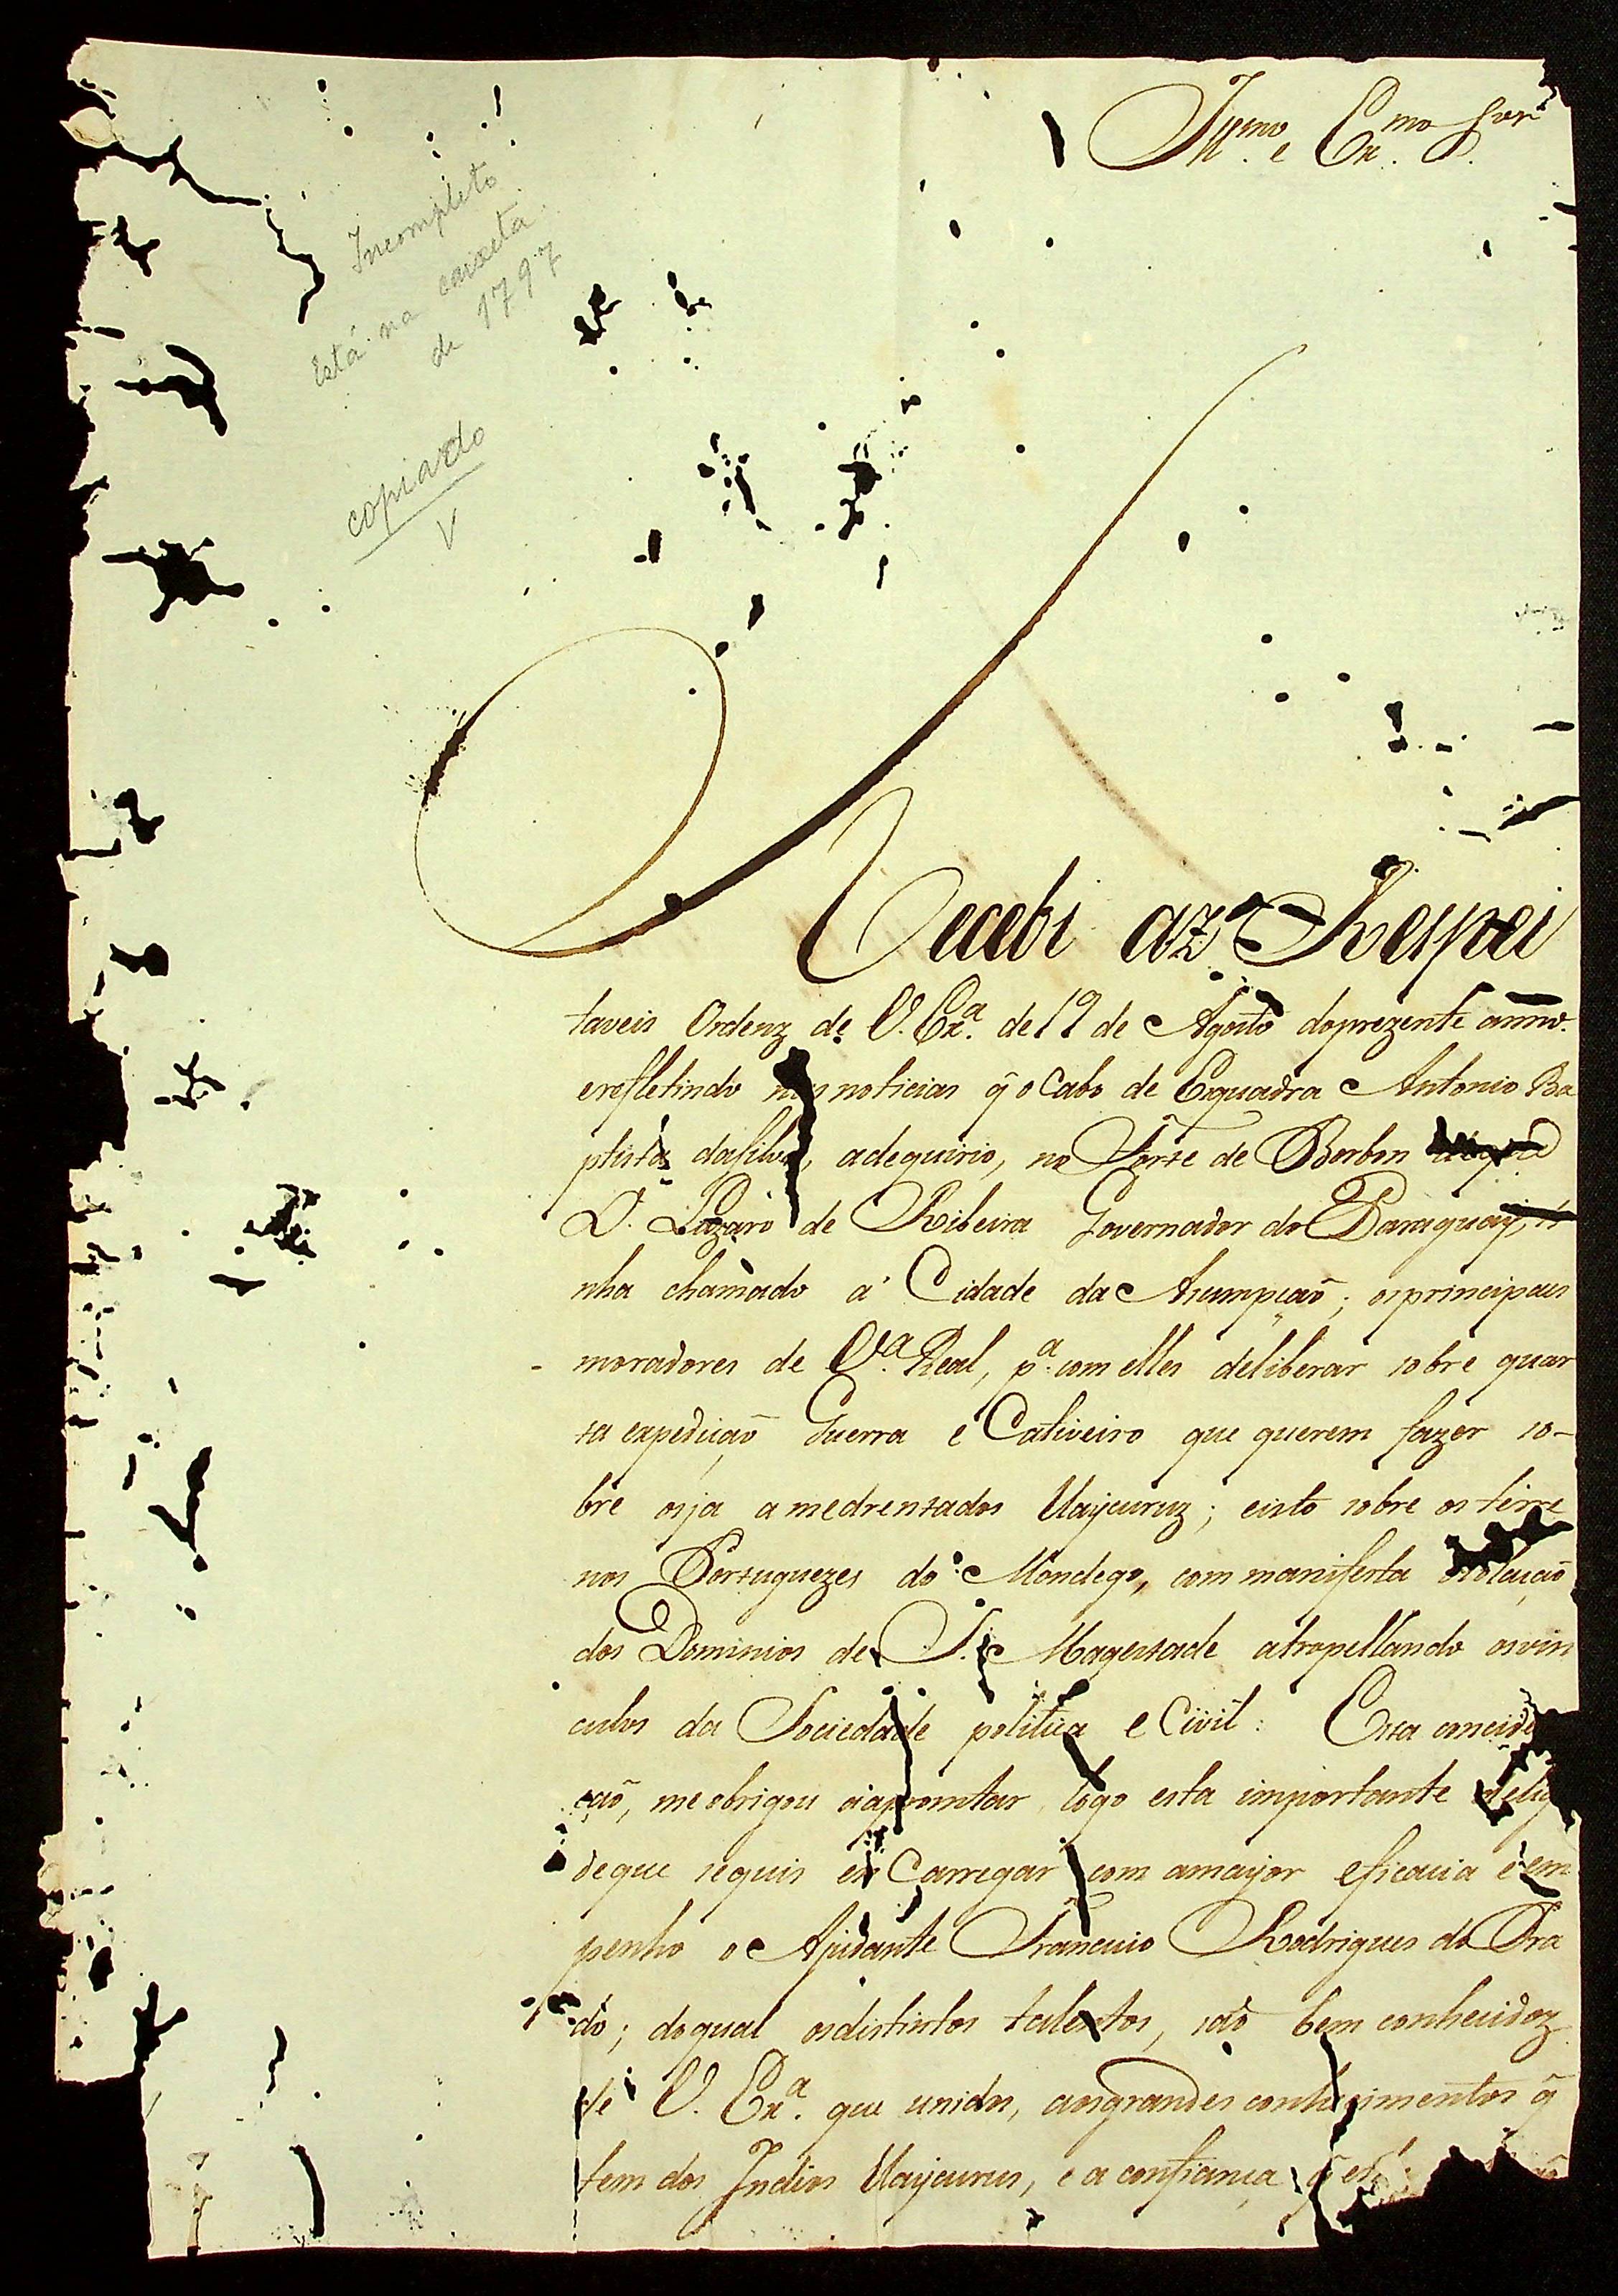 Illmo. e Exmo. Snr.
Incompleto
Está na caixeta
de 1797
copiado
V
Recebi az Respei
taveis Ordenz de V. Exa. de 19 de Agosto doprezente anno.
erefletindo nas noticias q̃ o Cabo de Esquadra Antonio Ba
ptista dasilva, adequirio, no Forte de Borbon
D. Lazaro de Ribeira Governador do Paraguay, ti
nha chamado á Cidade da Asumpçaõ; osprincipaes
moradores de Va. Real, pa. com elles deliberar sobre quar
ta expediçaõ Guerra e Cativeiro que querem fazer so-
bre osja amedrentados Uaycuruz; eisto sobre os terre
nos Portuguezes do Mondego, com manifesta violaçaõ
dos Dominios de S. Magestade atropellando osvin
culos da Sociedade politica e Civil: Esta concide
çaõ, me obrigou aapromtar logo esta importante delig
deque sequis en Carregar com amayor eficacia e em
penho o Ajudante Francisco Rodrigues do Pra
do; doqual osdistintos talentos, saõ bem conhecidoz
de V. Exa. que unidos, aosgrandes conhecimentos q̃
tem dos Indios Uaycurus, e a confiança q̃